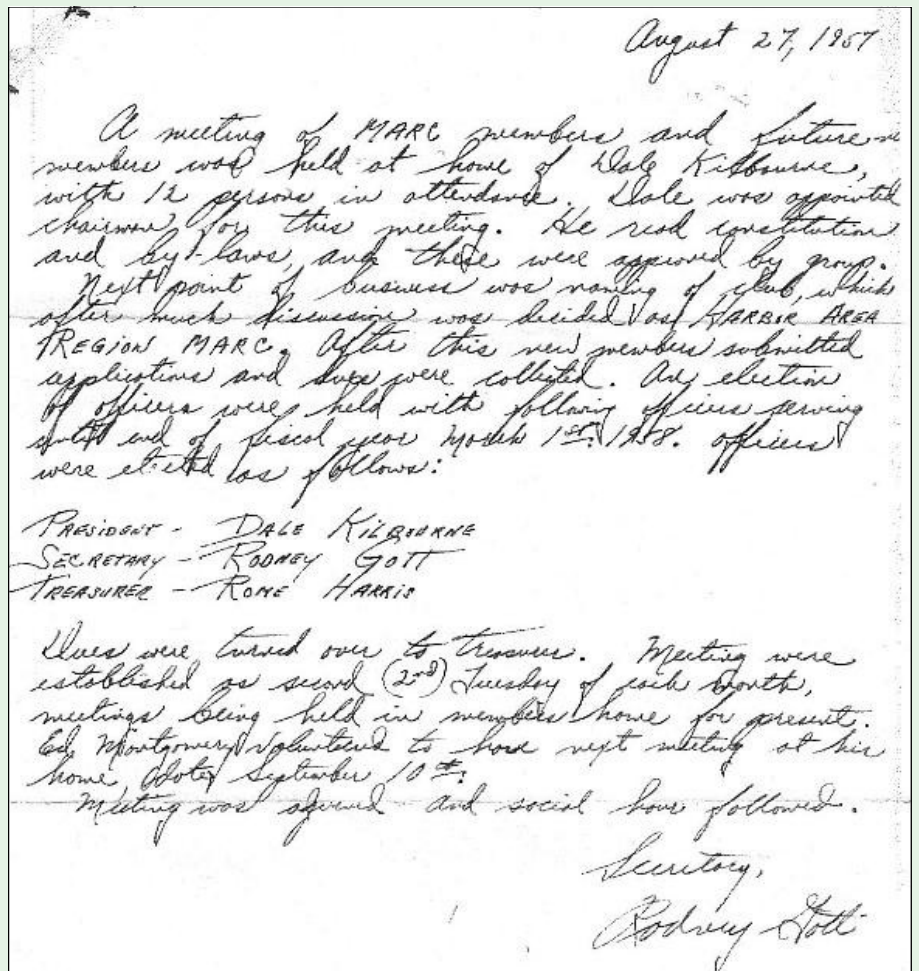 August 27, 1957
A meeting of MARC members and future
members was held at home of Dale Kilbourne,
with 12 persons in attendance. Dale was appointed
chairman for this meeting. He read constitution
and by-laws, and these were approved by group.
Next point of business was naming of club, which
after much discussion was decided as HARBOR AREA
REGION MARC. After this new members submitted
applications and dues were collected. An election
of officers were held with following officers serving
until end of fiscal year March 1st, 1958. Officers
were elected as follows:
PRESIDENT - DALE KILBOURNE
SECRETARY - RODNEY GOTT
TREASURER - ROME HARRIS
Dues were turned over to treasurer. Meeting were
established as second (2nd) Tuesday of each month,
meetings being held in members home for present.
Ed Montgomery volunteered to have next meeting at his
home September 10th.
Meeting was and social hour followed.
Secretary,
Rodney Gott